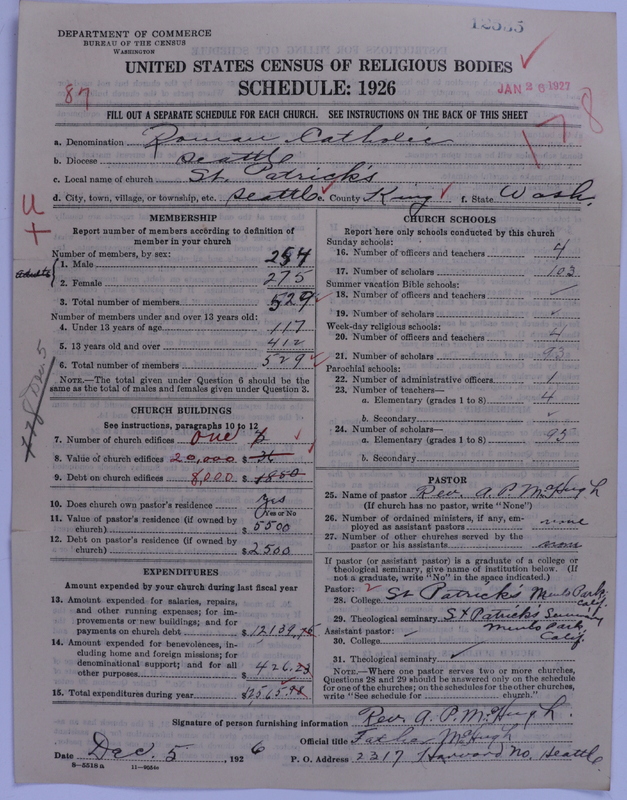 12335
DEPARTMENT OF COMMERCE
BUREAU OF THE CENSUS
WASHINGTON
UNITED STATES CENSUS OF RELIGIOUS BODIES
SCHEDULE: 1926
JAN 26 1927
87
178
FILL OUT A SEPARATE SCHEDULE FOR EACH CHURCH. SEE INSTRUCTIONS ON THE BACK OF THIS SHEET
a. Denomination Roman Catholic
b. Diocese Seattle
c. Local name of church St. Patrick's
d. City, town, village, or township, etc. Seattle e. County King f. State Wash.
U
+
MEMBERSHIP
Report number of members according to definition of member in your church
Number of members, by sex:
1. Male 254
2. Female 275
3. Total number of members 529
Number of members under and over 13 years old:
4. Under 13 years of age 117
5. 13 years old and over 412
6. Total number of members 529
NOTE.—The total given under Question 6 should be the same as the total of males and females given under Question 3.
CHURCH BUILDINGS
See instructions, paragraphs 10 to 12
7. Number of church edifices one
8. Value of church edifices 20,000 $
9. Debt on church edifices 8,000 $
10. Does church own pastor's residence Yes
(Yes or No)
11. Value of pastor's residence (if owned by church) $ 5500
12. Debt on pastor's residence (if owned by church) $ 2500
EXPENDITURES
Amount expended by your church during last fiscal year
13. Amount expended for salaries, repairs, and other running expenses; for improvements or new buildings; and for payments on church debt $ 12139.75
14. Amount expended for benevolences, including home and foreign missions; for denominational support; and for all other purposes $ 426.23
15. Total expenditures during year $ 12565.98
CHURCH SCHOOLS
Report here only schools conducted by this church
Sunday schools:
16. Number of officers and teachers 4
17. Number of scholars 103
Summer vacation Bible schools:
18. Number of officers and teachers
19. Number of scholars
Week-day religious schools:
20. Number of officers and teachers 4
21. Number of scholars 93
Parochial schools:
22. Number of administrative officers 1
23. Number of teachers—
a. Elementary (grades 1 to 8) 4
b. Secondary
24. Number of scholars—
a. Elementary (grades 1 to 8) 95
b. Secondary
PASTOR
25. Name of pastor Rev. A. P. McHugh
(If church has no pastor, write "None")
26. Number of ordained ministers, if any, employed as assistant pastors none
27. Number of other churches served by the pastor or his assistants none
If pastor (or assistant pastor) is a graduate of a college or theological seminary, give name of institution below. (If not a graduate, write "No" in the space indicated.)
Pastor: 2
28. College St Patrick's Menlo Park, Calif.
29. Theological seminary St Patrick's Seminary Menlo Park, Calif.
Assistant pastor:
30. College
31. Theological seminary
NOTE.—Where one pastor serves two or more churches, Questions 28 and 29 should be answered only on the schedule for one of the churches; on the schedules for the other churches, write "See schedule for church."
Signature of person furnishing information Rev. A. P. McHugh.
Official title Father McHugh
Date Dec. 5, 1926 P. O. Address 2317 Harvard No. Seattle
8—5518a 11—9034a